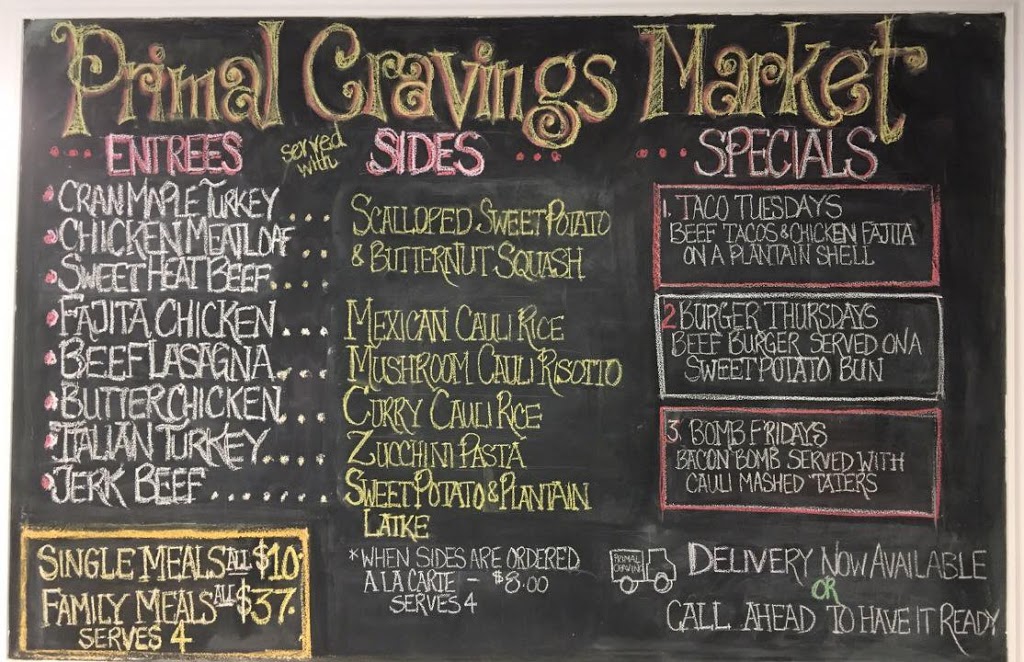 Primal Cravings Market
ENTREES
served with
SIDES
SPECIALS
CRAN MAPLE TURKEY....
CHICKEN MEATLOAF....
SWEET HEAT BEEF....
FAJITA CHICKEN...
BEEF LASAGNA...
BUTTER CHICKEN...
ITALIAN TURKEY....
JERK BEEF.......
SCALLOPED SWEET POTATO
& BUTTERNUT SQUASH
MEXICAN CAULI RICE
MUSHROOM CAULI RISOTTO
CURRY CAULI RICE
ZUCCHINI PASTA
SWEET POTATO & PLANTAIN
LATKE
*WHEN SIDES ARE ORDERED
A LA CARTE - $8.00
SERVES 4
1. TACO TUESDAYS
BEEF TACOS & CHICKEN FAJITA
ON A PLANTAIN SHELL
2 BURGER THURSDAYS
BEEF BURGER SERVED ON A
SWEET POTATO BUN
3. BOMB FRIDAYS
BACON BOMB SERVED WITH
CAULI MASHED 'TATERS
SINGLE MEALS ALL $10.
FAMILY MEALS ALL $37.
SERVES 4
PRIMAL
CRAVING
DELIVERY NOW AVAILABLE
OR
CALL AHEAD TO HAVE IT READY